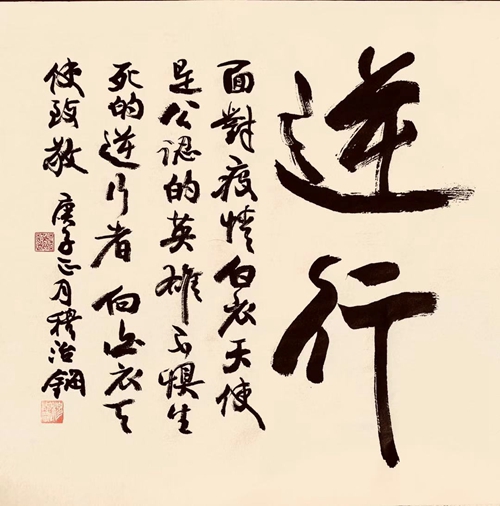 逆行
面對疫情白衣天使
是公認的英雄不懼生
死的逆行者向白衣天
使致敬
庚子正月穆治鋼